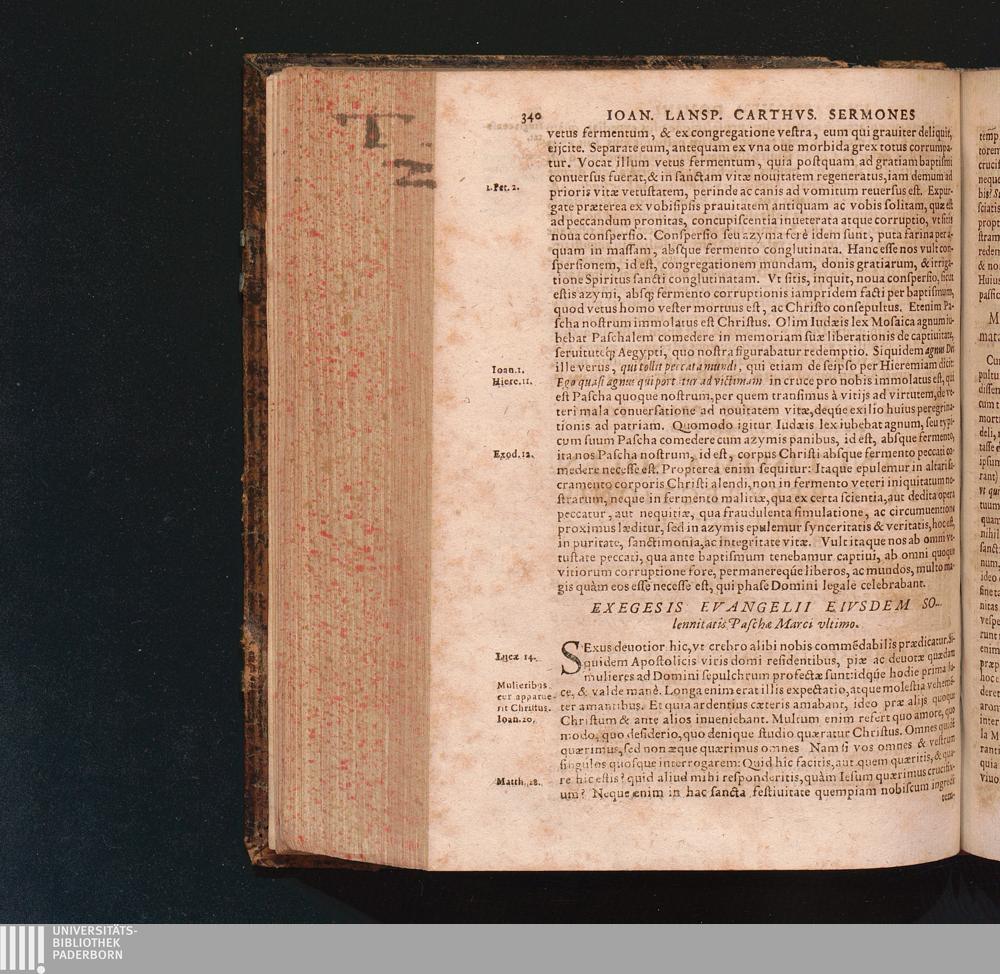 340 IOAN. LANSP. CARTHVS. SERMONES
vetus fermentum, & ex congregatione vestra, eum qui grauiter deliquit,
eijcite. Separate eum, antequam ex vna oue morbida grex totus corrumpa-
tur. Vocat illum vetus fermentum, quia postquam ad gratiam baptismi
conuersus fuerat, & in sanctam vitæ nouitatem regeneratus, iam demum ad
1. Pet. 2.
prioris vitæ vetustatem, perinde ac canis ad vomitum reuersus est. Expur-
gate præterea ex vobisipsis prauitatem antiquam ac vobis solitam, quæ est
ad peccandum pronitas, concupiscentia inueterata atque corruptio, vt sitis
noua conspersio. Conspersio seu azyma ferè idem sunt, puta farina per a-
quam in massam, absque fermento conglutinata. Hanc esse nos vult con-
spersionem, id est, congregationem mundam, donis gratiarum, & irriga-
tione Spiritus sancti conglutinatam. Vt sitis, inquit, noua conspersio, sicut
estis azymi, absq; fermento corruptionis iampridem facti per baptismum,
quod vetus homo vester mortuus est, ac Christo consepultus. Etenim Pa-
scha nostrum immolatus est Christus. Olim Iudæis lex Mosaica agnum iu-
bebat Paschalem comedere in memoriam suæ liberationis de captiuitate,
seruituteq; Aegypti, quo nostra figurabatur redemptio. Siquidem agnus Dei
Ioan. 1.
ille verus, qui tollit peccata mundi, qui etiam de seipso per Hieremiam dicit:
Hiere. 11.
Ego quasi agnus qui portatur ad victimam in cruce pro nobis immolatus est, qui
est Pascha quoque nostrum, per quem transimus à vitijs ad virtutem, de ve-
teri mala conuersatione ad nouitatem vitæ, deq́ue exilio huius peregrina-
tionis ad patriam. Quomodo igitur Iudæis lex iubebat agnum, seu typi-
cum suum Pascha comedere cum azymis panibus, id est, absque fermento,
Exod. 12.
ita nos Pascha nostrum, id est, corpus Christi absque fermento peccati co-
medere necesse est. Propterea enim sequitur: Itaque epulemur in altari sa-
cramento corporis Christi alendi, non in fermento veteri iniquitatum no-
strarum, neque in fermento malitiæ, qua ex certa scientia, aut dedita opera
peccatur, aut nequitiæ, qua fraudulenta simulatione, ac circumuentione
proximus læditur, sed in azymis epulemur synceritatis & veritatis, hoc est,
in puritate, sanctimonia, ac integritate vitæ. Vult itaque nos ab omni ve-
tustate peccati, qua ante baptismum tenebamur captiui, ab omni quoque
vitiorum corruptione fore, permanereq́ue liberos, ac mundos, multo ma-
gis quàm eos esse necesse est, qui phase Domini legale celebrabant.
EXEGESIS EVANGELII EIVSDEM SO-
lennitatis Paschæ Marci vltimo.
SExus deuotior hic, vt crebro alibi nobis commēdabilis prædicatur. Si-
Lucæ 14.
quidem Apostolicis viris domi residentibus, piæ ac deuotæ quædam
mulieres ad Domini sepulchrum profectæ sunt: idq́ue hodie prima lu-
Mulieribus
ce, & valde manè. Longa enim erat illis expectatio, atque molestia vehemē-
cur apparue-
ter amantibus. Et quia ardentius cæteris amabant, ideo præ alijs quoque
rit Christus.
Christum & ante alios inueniebant. Multum enim refert quo amore, quo
Ioan. 20.
modo, quo desiderio, quo denique studio quæratur Christus. Omnes quidē
quærimus, sed non æque quærimus omnes Nam si vos omnes & vestrum
singulos quosque interrogarem: Quid hic facitis, aut quem quæritis, & qua-
Matth. 28.
re hic estis? quid aliud mihi responderitis, quàm Iesum quærimus crucifix-
um? Neque enim in hac sancta festiuitate quempiam nobiscum ingredi
tem-
UNIVERSITÄTS-
BIBLIOTHEK
PADERBORN